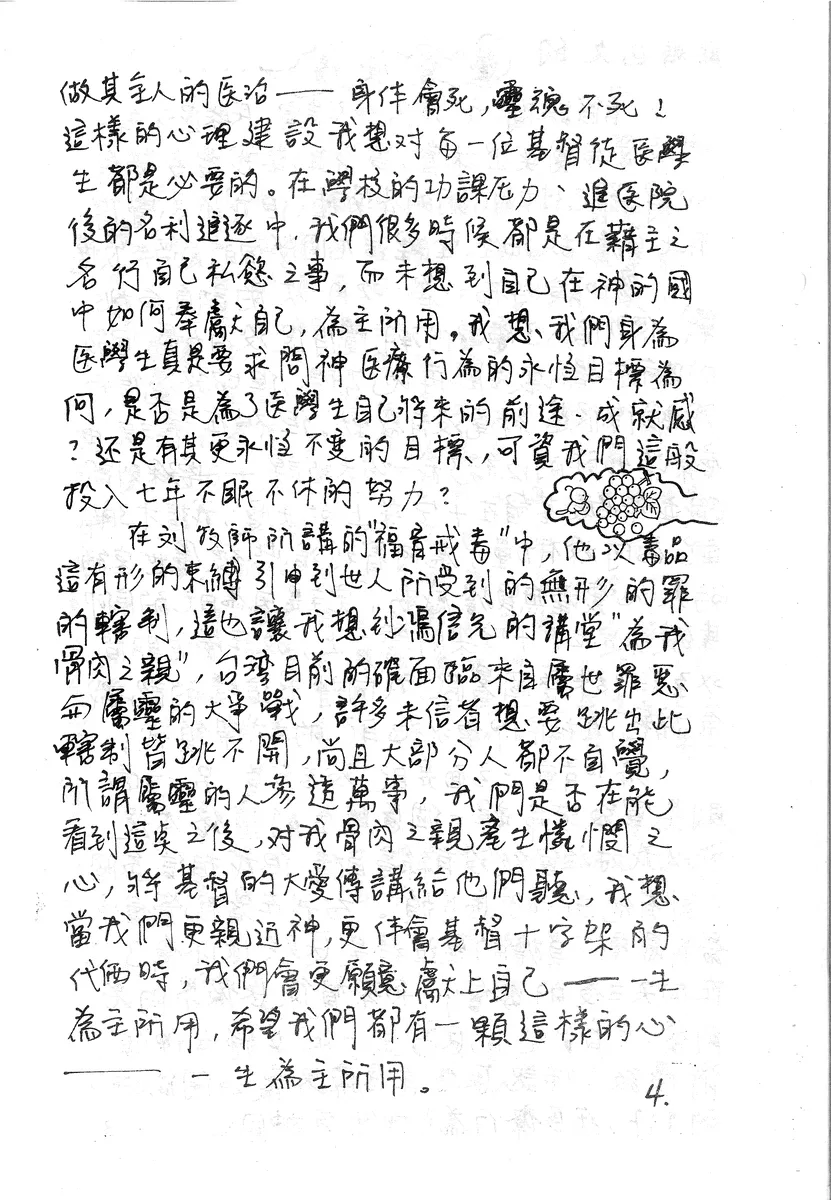 做其主人的医治——身体會死,靈魂不死!
這樣的心理建設我想对每一位基督徒医學
生都是必要的。在學校的功課压力、進医院
後的名利追逐中,我們很多時候都是在藉主之
名行自己私慾之事,而未想到自己在神的國
中如何奉獻自己,為主所用。我想、我們身為
医學生真是要求問神医療行為的永恆目標為
何,是否是為了医學生自己將來的前途、成就感
?还是有其更永恆不变的目標,可資我們這般
投入七年不眠不休的努力?
在刘牧師所講的"福音戒毒"中,他以毒品
這有形的束縛引申到世人所受到的無形的罪
的轄制,這也讓我想到馮信允的講堂"為我
骨肉之親",台湾目前的確面臨來自屬世罪惡
與屬靈的大爭戰,許多未信者想要跳出此
轄制皆跳不開,尚且大部分人都不自覺,
所謂屬靈的人參透萬事,我們是否在能
看到這奌之後,对我骨肉之親產生憐憫之
心,將基督的大愛傳講給他們聽,我想
當我們更親近神,更体會基督十字架的
代価時,我們會更願意獻上自己——一生
為主所用,希望我們都有一顆這樣的心
——一生為主所用。
4.